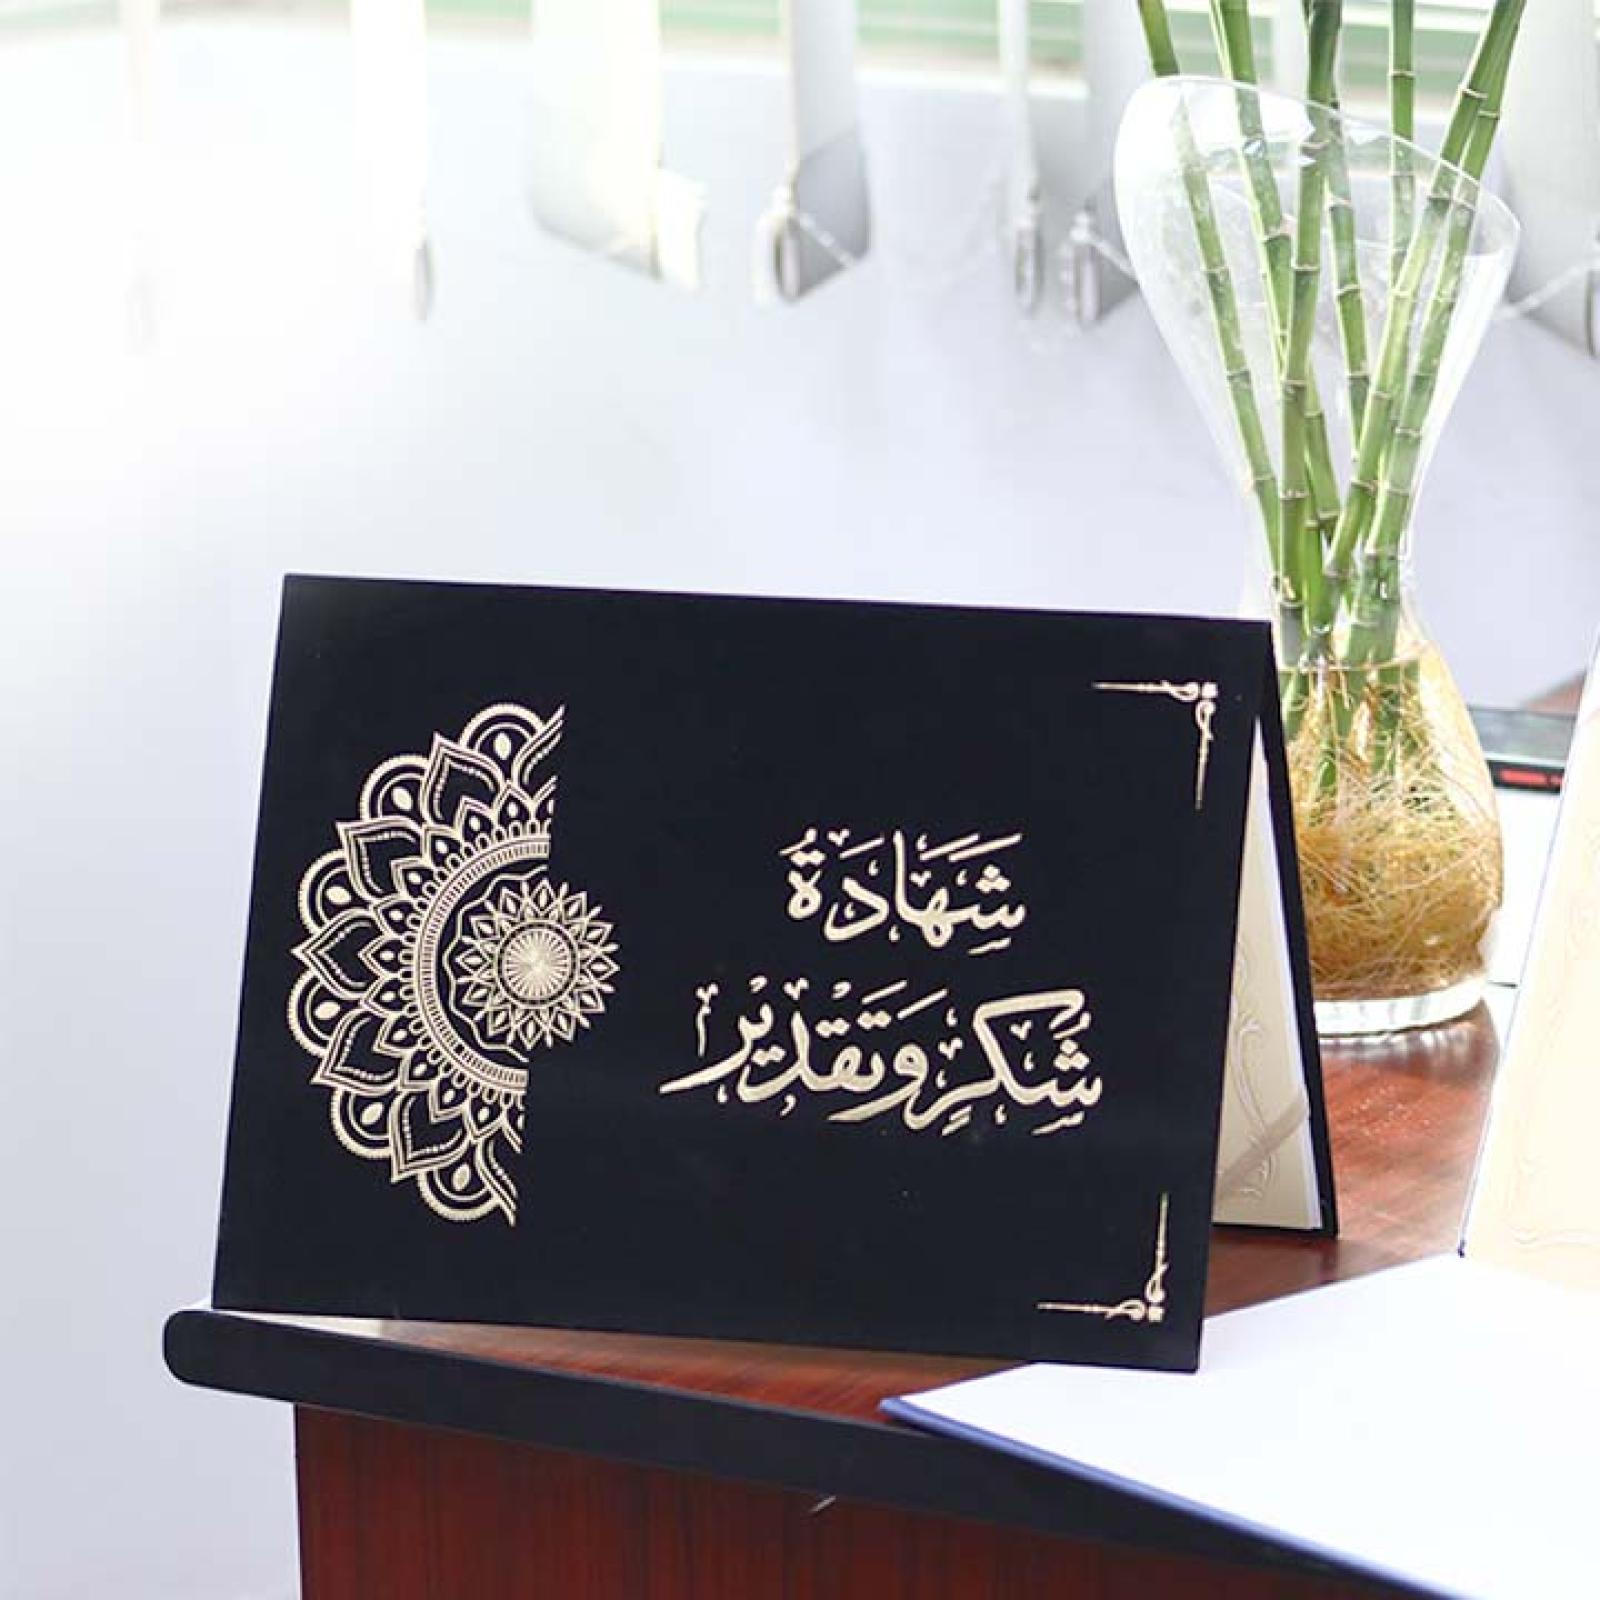 شَهَادَةُ
شُكرٍ وَتَقْدِيْر